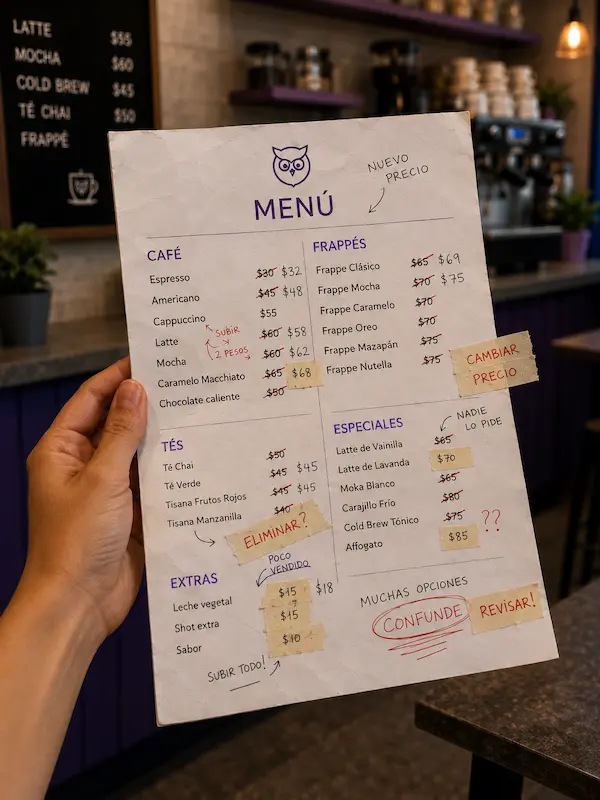 LATTE $55
MOCHA $60
COLD BREW $45
TÉ CHAI $50
FRAPPÉ
MENÚ
NUEVO
PRECIO
CAFÉ
Espresso $30 $32
Americano $45 $48
Cappuccino $55
SUBIR
2 PESOS
Latte $60 $58
Mocha $60 $62
Caramelo Macchiato $65 $68
Chocolate caliente $50
FRAPPÉS
Frappe Clásico $65 $69
Frappe Mocha $70 $75
Frappe Caramelo $70
Frappe Oreo $70
Frappe Mazapán $75
Frappe Nutella $75
CAMBIAR
PRECIO
TÉS
$50
Té Chai $45 $45
Té Verde $45 $45
Tisana Frutos Rojos $40
Tisana Manzanilla
ELIMINAR?
ESPECIALES
NADIE
LO PIDE
Latte de Vainilla $65
Latte de Lavanda $70
Moka Blanco $65
Carajillo Frío $80
Cold Brew Tónico $75
Affogato $85
??
EXTRAS
POCO
VENDIDO
Leche vegetal $15 $18
Shot extra $15
Sabor $10
SUBIR TODO!
MUCHAS OPCIONES
CONFUNDE
REVISAR!